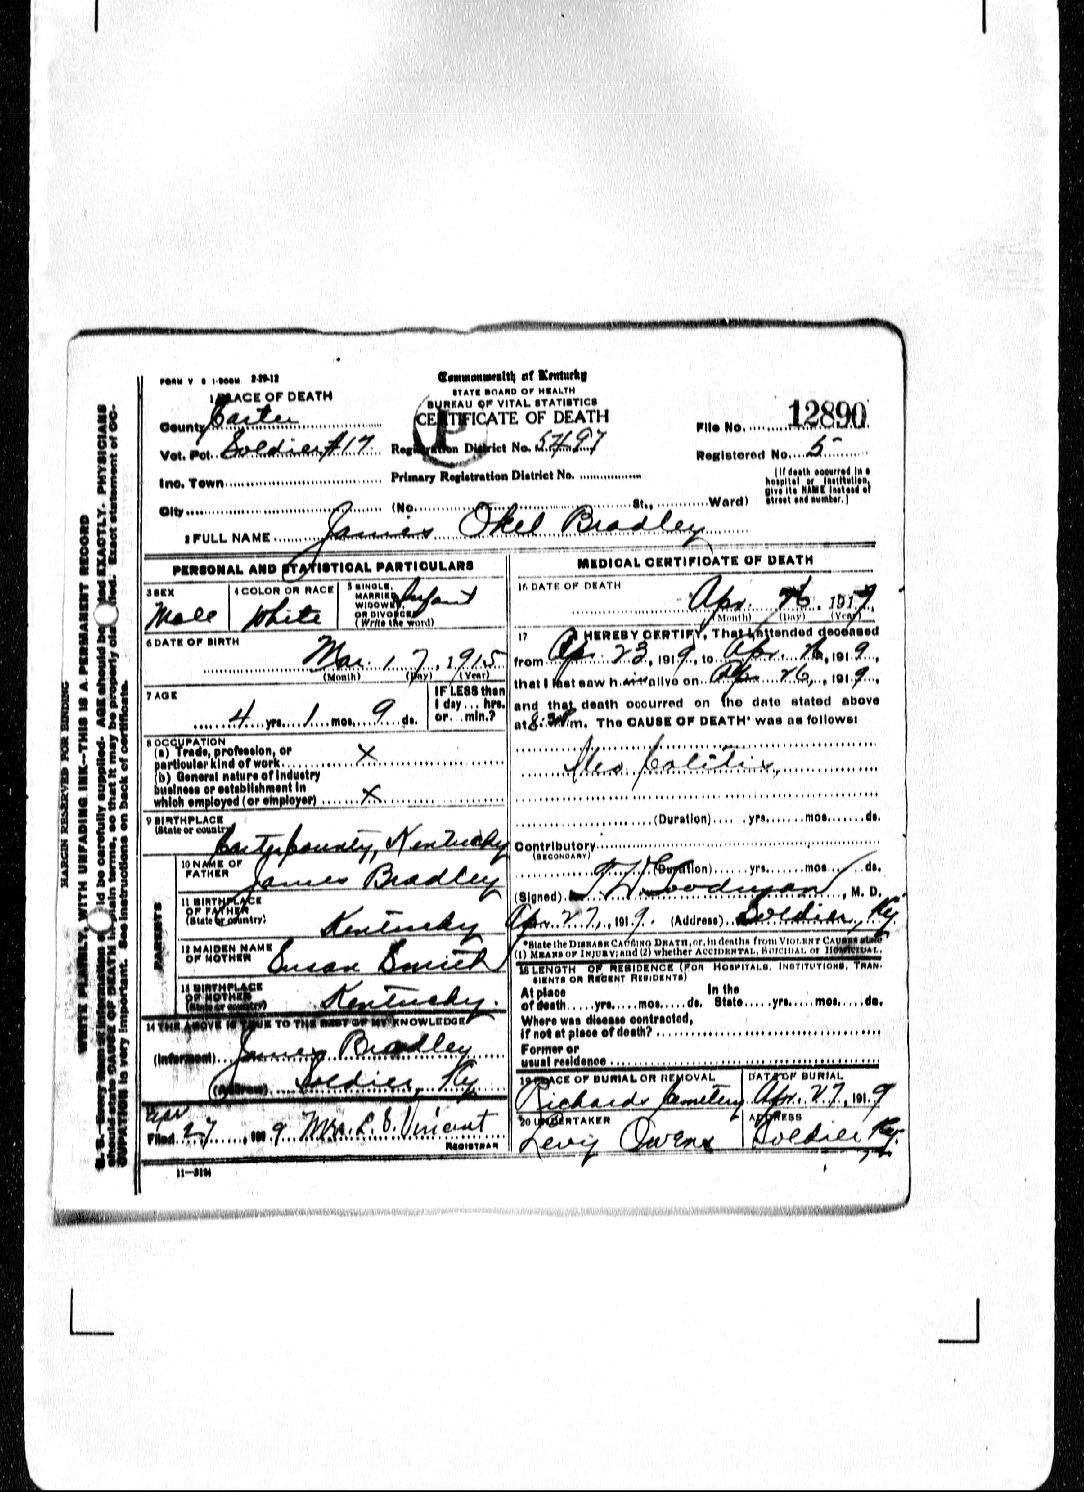 FORM V S 1-500M 2-29-12
Commonwealth of Kentucky
STATE BOARD OF HEALTH
BUREAU OF VITAL STATISTICS
CERTIFICATE OF DEATH
P
1 PLACE OF DEATH
County Carter
Vot. Pct. Soldier #17
Inc. Town
City
Registration District No. 5497
Primary Registration District No.
(No. St., Ward)
File No. 12890
Registered No. 5
[If death occurred in a
hospital or institution,
give its NAME instead of
street and number.]
2 FULL NAME James Okel Bradley
PERSONAL AND STATISTICAL PARTICULARS
3 SEX
Male
4 COLOR OR RACE
White
5 SINGLE,
MARRIED,
WIDOWED,
OR DIVORCED
(Write the word)
Infant
6 DATE OF BIRTH
Mar. 17, 1915
(Month) (Day) (Year)
7 AGE
4 yrs. 1 mos. 9 ds.
IF LESS than
1 day... hrs.
or... min.?
8 OCCUPATION
(a) Trade, profession, or
particular kind of work X
(b) General nature of industry
business or establishment in
which employed (or employer) X
9 BIRTHPLACE
(State or country)
Carter County, Kentucky
PARENTS
10 NAME OF
FATHER
James Bradley
11 BIRTHPLACE
OF FATHER
(State or country)
Kentucky
12 MAIDEN NAME
OF MOTHER
Susan Smith
13 BIRTHPLACE
OF MOTHER
(State or country)
Kentucky.
14 THE ABOVE IS TRUE TO THE BEST OF MY KNOWLEDGE
(Informant) James Bradley
(Address) Soldier, Ky
Filed 27, 1919 Mrs. L. S. Vincent
REGISTRAR
11—3184
MEDICAL CERTIFICATE OF DEATH
16 DATE OF DEATH
Apr. 26, 1919
(Month) (Day) (Year)
17 I HEREBY CERTIFY, That I attended deceased
from Apr. 23, 1919, to Apr. 26, 1919,
that I last saw him alive on Apr 26, 1919,
and that death occurred on the date stated above
at 8: m. The CAUSE OF DEATH* was as follows:
Ileo Colitis,
(Duration) yrs. mos. ds.
Contributory
(SECONDARY)
(Duration) yrs. mos ds.
(Signed) Woodman, M. D.
Apr. 27, 1919. (Address) Soldier, Ky.
*State the DISEASE CAUSING DEATH, or, in deaths from VIOLENT CAUSES state
(1) MEANS OF INJURY; and (2) whether ACCIDENTAL, SUICIDAL or HOMICIDAL.
18 LENGTH OF RESIDENCE (FOR HOSPITALS, INSTITUTIONS, TRAN-
SIENTS OR RECENT RESIDENTS)
At place In the
of death yrs. mos. ds. State yrs. mos. ds.
Where was disease contracted,
if not at place of death?
Former or
usual residence
19 PLACE OF BURIAL OR REMOVAL
Richards Cemetery
DATE OF BURIAL
Apr. 27, 1919
20 UNDERTAKER
Levy Owens
ADDRESS
Soldier, Ky.
MARGIN RESERVED FOR BINDING
WRITE PLAINLY, WITH UNFADING INK—THIS IS A PERMANENT RECORD